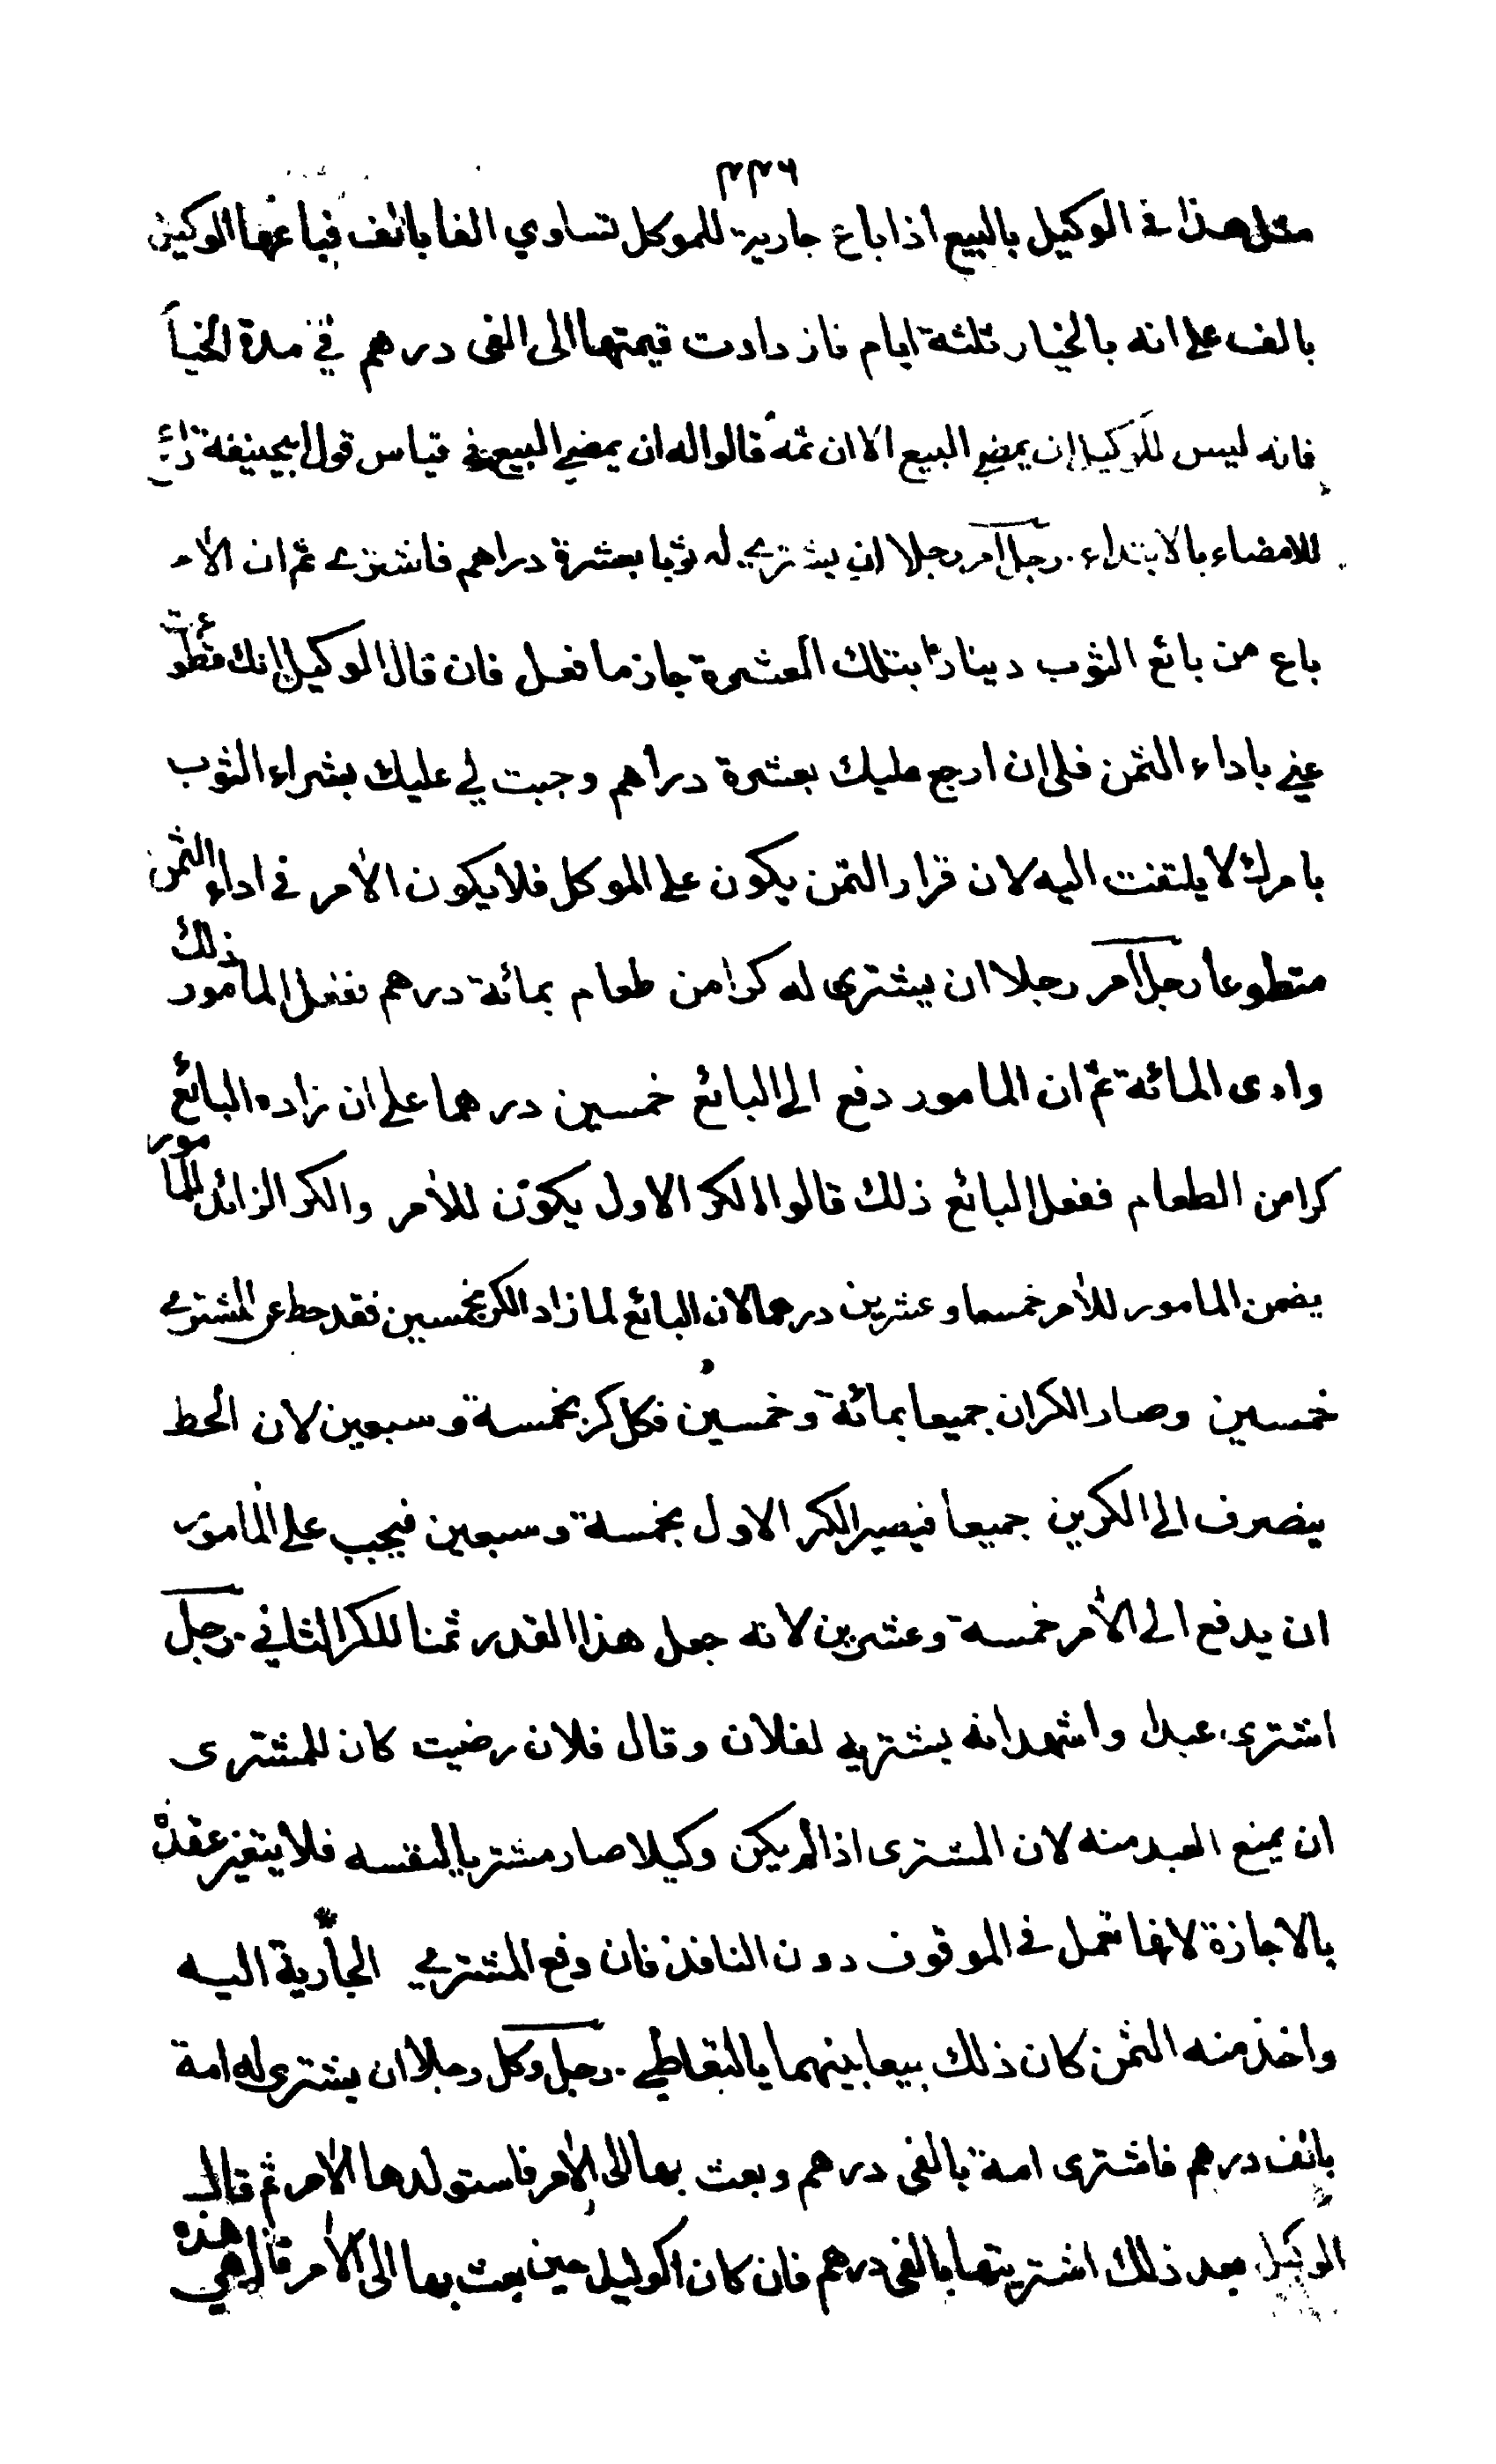 ٢٢٦
مثل هذا في الوكيل بالبيع اذا باع جارية للموكل تساوي الفا بالف فباعها الوكيل
بالف على انه بالخيار ثلثة ايام فازدادت قيمتها الى الفى درهم في مدة الخيا
فانه ليس للوكيل ان يمضي البيع الا ان ثمه قالوا له ان يمضي البيع في قياس قول ابيحنيفة
للامضاء بالابتداء. رجل آمر رجلا ان يشتري له ثوبا بعشرة دراهم فاشترى ثم ان الآمر
باع من بائع الثوب دينارا بتلك العشرة جاز ما فعل فان قال الوكيل انك تطوعت
عني باداء الثمن فلى ان ارجع عليك بعشرة دراهم وجبت لي عليك بشراء الثوب
بامرك لا يلتفت اليه لان قرار الثمن يكون على الموكل فلا يكون الآمر في اداء الثمن
متطوعا رجل آمر رجلا ان يشترى له كرا من طعام بمائة درهم ففعل المأمور ذلك
وادى المائة ثم ان المامور دفع الى البائع خمسين درهما على ان زاده البائع
كرا من الطعام ففعل البائع ذلك قالوا الكر الاول يكون للآمر والكر الزائد للمامور
يضمن المامور للآمر خمسا وعشرين درهما لان البائع لما زاد الكر بخمسين فقد حط عن المشتري
خمسين وصار الكران جميعا بمائة وخمسين فكل كر بخمسة وسبعين لان الحط
ينصرف الى الكرين جميعا فيصير الكر الاول بخمسة وسبعين فيجب على المامور
ان يدفع الى الآمر خمسة وعشرين لانه جعل هذا القدر ثمنا للكر الثاني. رجل
اشترى عبدا واشهد انه يشتريه لفلان وقال فلان رضيت كان للمشترى
ان يمنع العبد منه لان المشترى اذا لم يكن وكيلا صار مشتريا لنفسه فلا يتغير عقده
بالاجازة لانها تعمل في الموقوف دون النافذ فان دفع المشتري الجارية اليه
واخذ منه الثمن كان ذلك بيعا بينهما بالتعاطي. رجل وكل رجلا ان يشترى له امة
بالف درهم فاشترى امة بالفى درهم وبعث بها الى الآمر فاستولدها الآمر ثم قال
الوكيل بعد ذلك اشتريتها بالفى درهم فان كان الوكيل حين بعث بها الى الآمر قال هي هذه